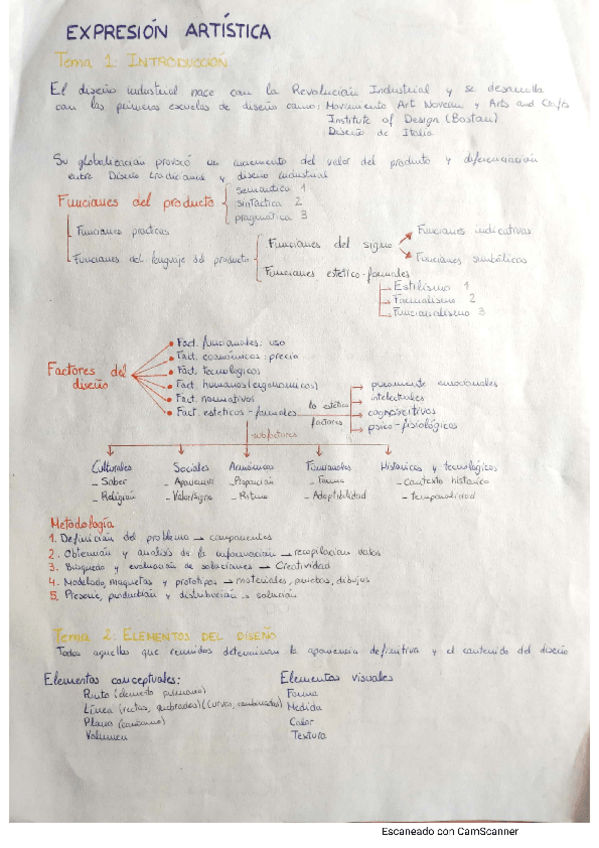 EXPRESIÓN ARTÍSTICA
Tema 1: INTRODUCCIÓN
El diseño industrial nace con la Revolución Industrial y se desarrolla
con las primeras escuelas de diseño como: Movimiento Art Noveau y Arts and Crafts
Institute of Design (Boston)
Diseño de Italia
Su globalización provocó un incremento del valor del producto y diferenciación
entre Diseño tradicional y diseño industrial
Funciones del producto
semántica 1
sintáctica 2
pragmática 3
Funciones prácticas
Funciones del lenguaje del producto
Funciones del signo
Funciones indicativas
Funciones simbólicas
Funciones estético-formales
Estilismo 1
Formalismo 2
Funcionalismo 3
Factores del diseño
Fact. funcionales: uso
Fact. económicos: precio
Fact. tecnológicos
Fact. humanos (ergonomicos)
Fact. normativos
Fact. esteticos-formales
lo estético
factores
puramente emocionales
intelectuales
cognoscitivos
psico-fisiológicos
subfactores
Culturales
- Saber
- Religión
Sociales
- Apariencia
- Valor/signo
Armónicos
- Proporción
- Ritmo
Formales
- Forma
- Adaptibilidad
Historicos y tecnológicos
- Contexto histórico
- Temporalidad
Metodología
1. Definición del problema → componentes
2. Obtención y analisis de la información → recopilacion datos
3. Búsqueda y evaluación de soluciones → Creatividad
4. Modelado, maquetas y prototipos → materiales, pruebas, dibujos
5. producción y distribución → solución
Tema 2: ELEMENTOS DEL DISEÑO
Todos aquellos que reunidos determinan la apariencia definitiva y el contenido del diseño
Elementos conceptuales:
Punto (elemento primario)
Línea (rectas, quebradas) (curvas, combinadas)
Plano
Volumen
Elementos visuales
Forma
Medida
Color
Textura
Escaneado con CamScanner